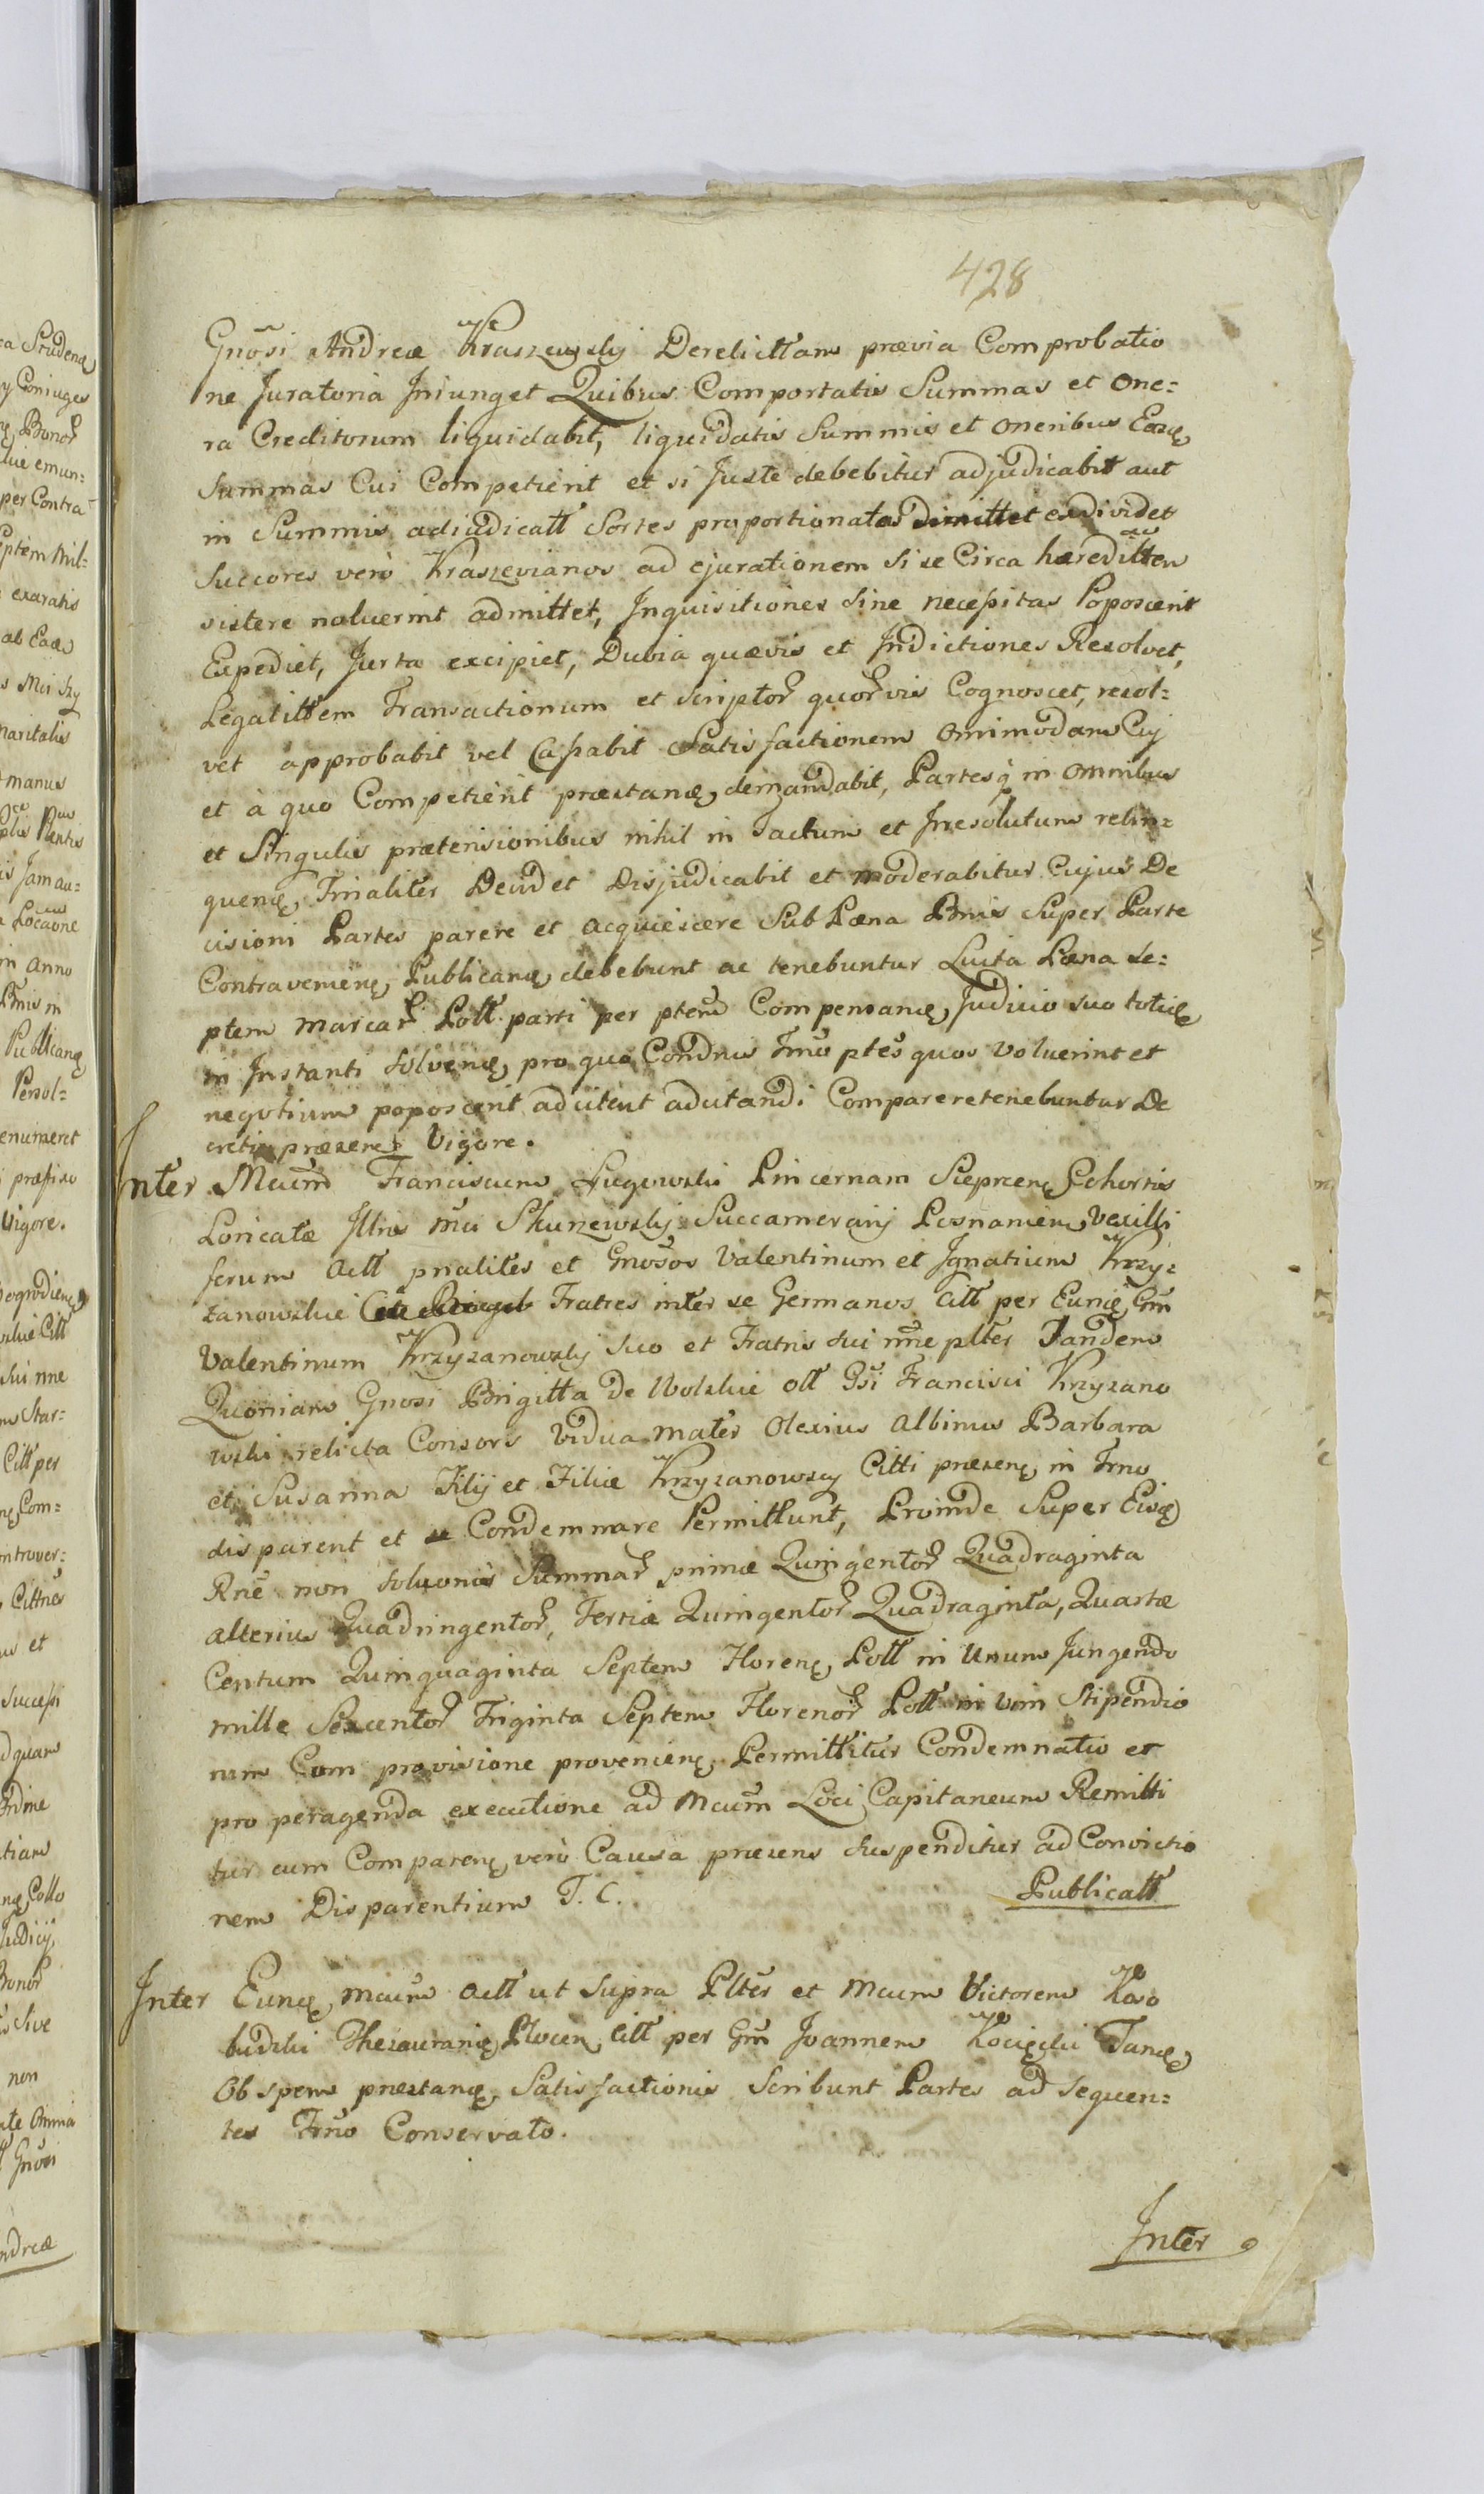 428
Gnosi Andreæ Kraszewskij Derelictam prævia Comprobatio
ne Juratoria Iniunget Quibus Comportatis Summas et One=
ra Creditorum liquidabit, liquidatis Summis et Oneribus Easq
Summas Cui Competient et si Juste debebitur adjudicabit aut
in Summis adiudicatt Sortes proportionatas dimittet exdividet
Succores verò Kraszevianos ad ejurationem si se Circa hæreditten
sistere noluerint admittet, Inquisitiones sine necessitas Poposcerit
Expediet, Jurta excipiet, Dubia quævis et Indictiones Resolvet,
Legalittem Transactionum et Scriptor quorvis Cognoscet, resol=
vet approbabit vel Cassabit Satisfactionem Omnimodam Cuj
et à quo Competierit præstanę demandabit, Partesq in Omnibus
et Singulis prætensionibus nihil in Tactum et Irresolutum relin=
quenę Finaliter Decidet Disjudicabit et moderabitur Cujus De
cisioni Partes parere et acquiescere Sub Pæna Bnis Super Parte
Contravenienę Publicanę debebunt ac tenebuntur Luita Pæna Se=
ptem marcar Poll parti per ptem Compensanę Judicio suo totięs
in Instanti Solvenę, pro quo Condnus Trno ptes quos Voluerint et
negotium poposcerit ad citent adcitandi Comparere tenebuntur De
creti præsens Vigore.
Inter Mcum Franciscum Lugowski Pincernam Siepracen Cohortis
Loricatæ Illris Mci Skurzewskij Succamerarij Posnanien Vexilli
ferum Actt pnaliter et Gnosos Valentinum et Ignatium Krzy=
zanowskie Fratres inter se Germanos Citt per Eunę Gm
Valentinum Krzyzanowskij suo et Fratris sui nne plter Tandem
Quoniam Gnosi Brigitta de Wolskie oll Gsi Francisci Krzyzano
wski relicta Consors Vidua mater Olexius Albinus Barbara
et Susanna Filij et Filiæ Krzyzanowscy Citti præsenę in Trno
disparent et se Condemnare Permittunt, Proinde Super Eisę
Rne non Soluonis Summar primæ Quingentor Quadraginta
alterius Quadringentor, Tertiæ Quingentor Quadraginta, Quartæ
Centum Quinquaginta Septem Florenę Poll in Unum Jungendo
mille Sexcentor Triginta Septem Florenor Poll in vim Stipendio
rum Cum provisione provenienę Permittitur Condemnatio et
pro peragenda executione ad Mcum Loci Capitaneum Remitti
tur cum Comparenę verò Causa præsens Suspenditur ad Convictio
nem Disparentium T. C.
Publicatt
Inter Eunę Mcum Actt ut Supra Plter et Mcum Victorem Koso
budzki Thesaurarię Plocen Citt per Gm Joannem Kocięcki Tanę
Ob spem præstanę Satisfactionis Scribunt Partes ad Sequen=
tes Trno Conservato.
Inter